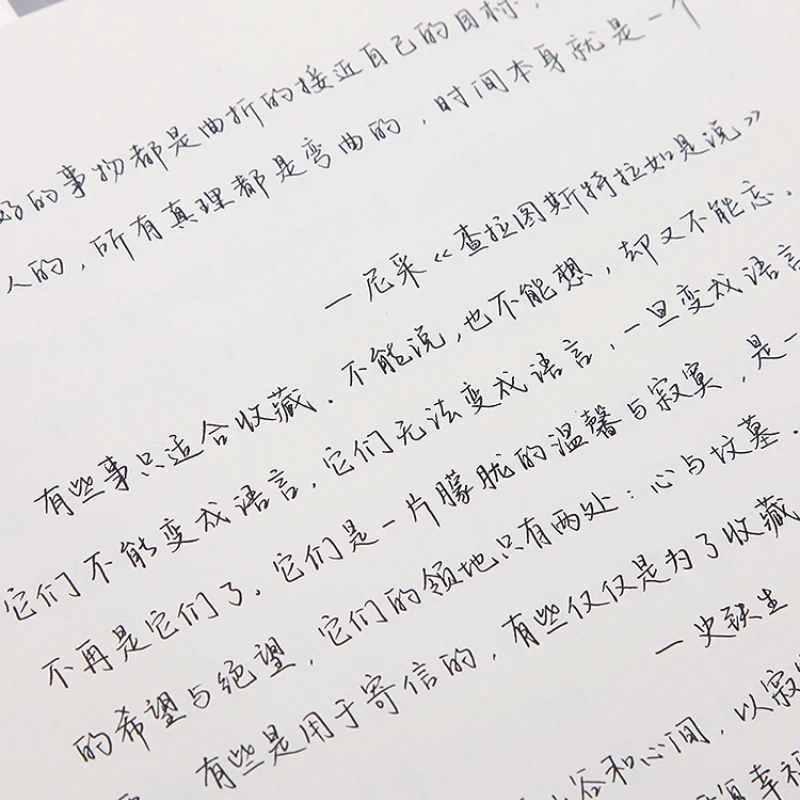 好的事物都是曲折的接近自己的目标，
人的，所有真理都是弯曲的，时间本身就是一个
一尼采《查拉图斯特拉如是说》
有些事只适合收藏．不能说，也不能想，却又不能忘．
它们不能变成语言，它们无法变成语言，一旦变成语言
不再是它们了．它们是一片朦胧的温馨与寂寞，是一
的希望与绝望，它们的领地只有两处：心与坟墓．
有些是用于寄信的，有些仅仅是为了收藏
一史铁生
谷和心间，以寂
幸福